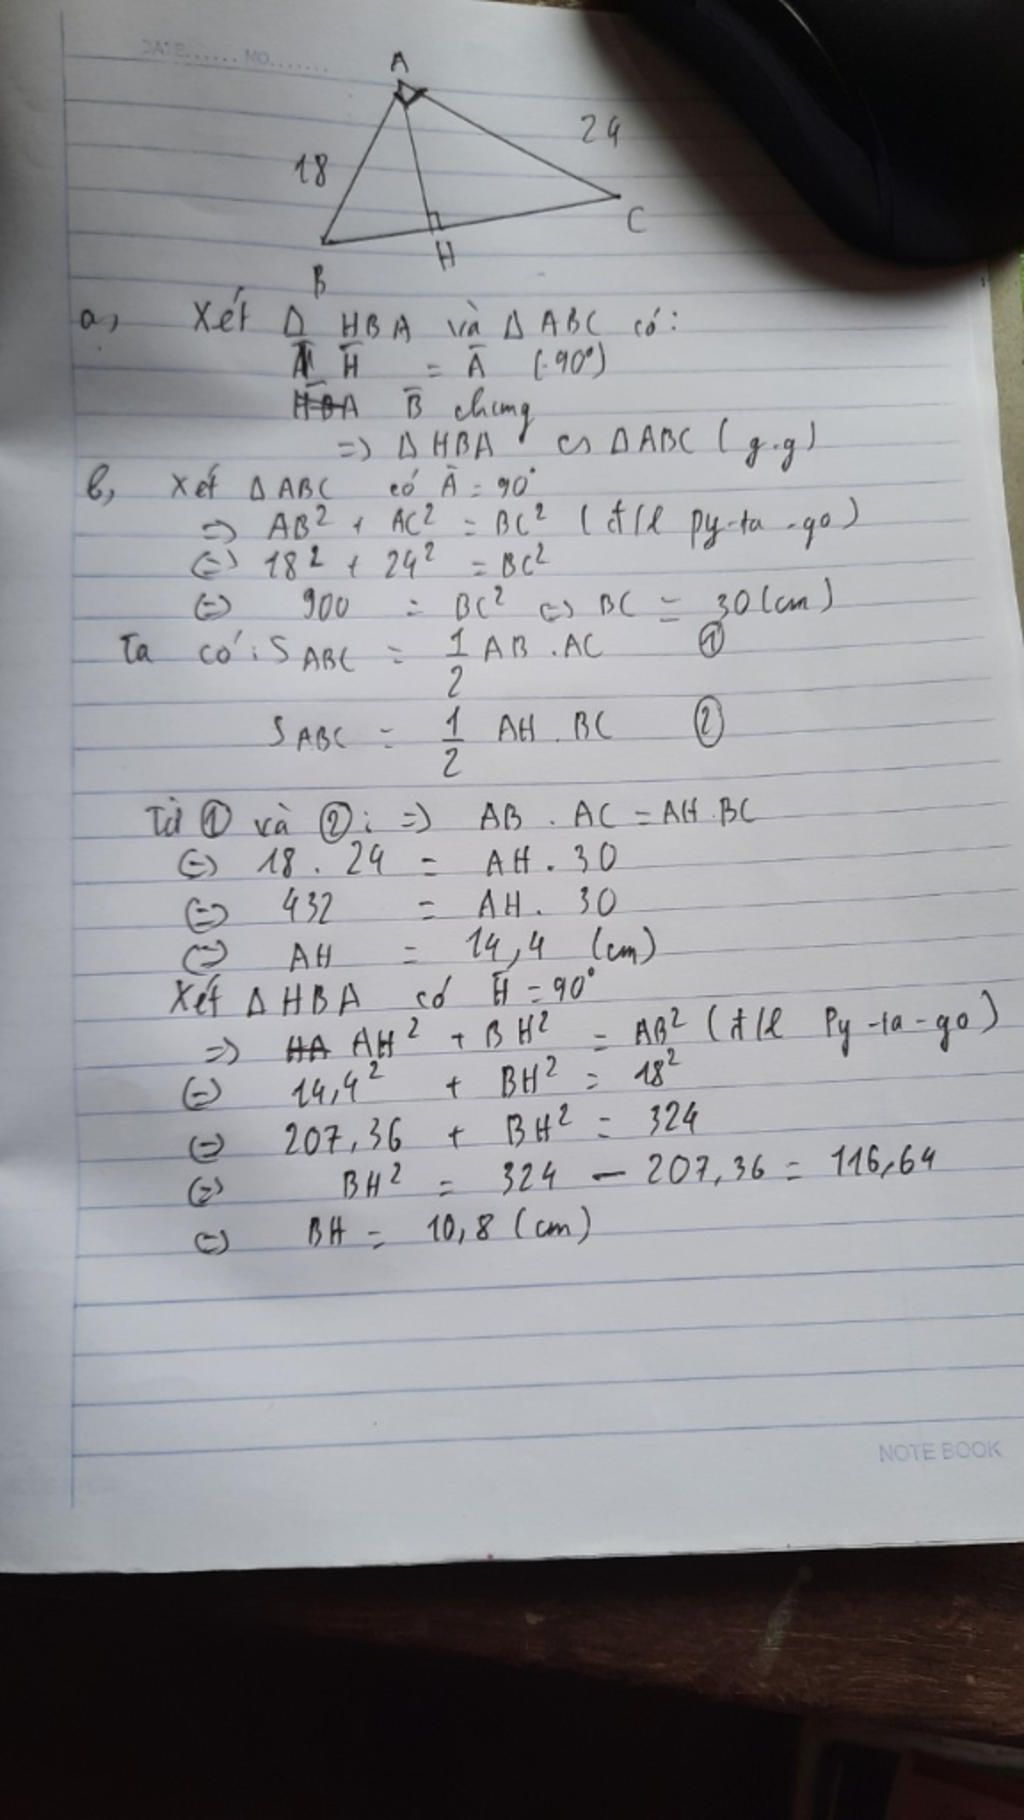 DATE...... NO.......
A
24
18
C
H
B
a, Xét Δ HBA và Δ ABC có:
H̄ = Ā (.90°)
B̄ chung
=> Δ HBA ᔕ Δ ABC (g.g)
b, Xét Δ ABC có Ā = 90°
=> AB² + AC² = BC² (đ/l Py-ta-go)
(=) 18² + 24² = BC²
(=) 900 = BC² <=> BC = 30 (cm)
Ta có: S ABC = 1/2 AB . AC ①
S ABC = 1/2 AH . BC ②
Từ ① và ②: => AB . AC = AH . BC
(=) 18 . 24 = AH . 30
(=) 432 = AH . 30
(=) AH = 14,4 (cm)
Xét Δ HBA có H̄ = 90°
=> AH² + BH² = AB² (đ/l Py-ta-go)
(=) 14,4² + BH² = 18²
(=) 207,36 + BH² = 324
(=) BH² = 324 - 207,36 = 116,64
(=) BH = 10,8 (cm)
NOTE BOOK